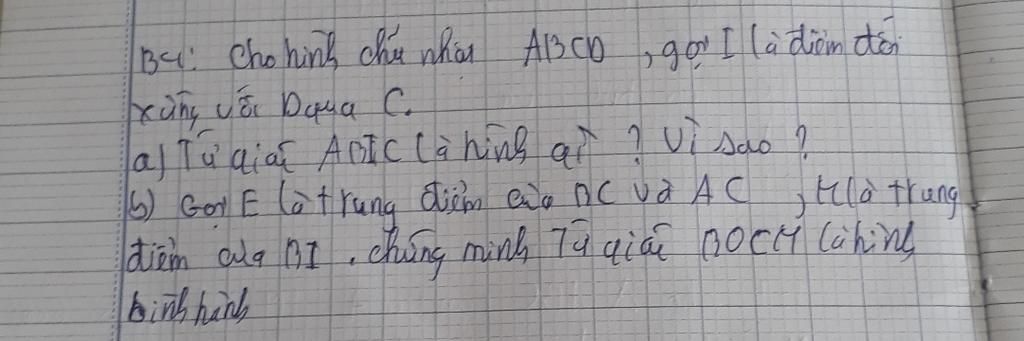 B4: Cho hình chữ nhật ABCD, gọi I là điểm đối
xứng với D qua C.
a) Tứ giác ABIC là hình gì? Vì sao?
b) Gọi E là trung điểm của BC và AC, H là trung
điểm của BI. chứng minh Tứ giác BOCH là hình
bình hành